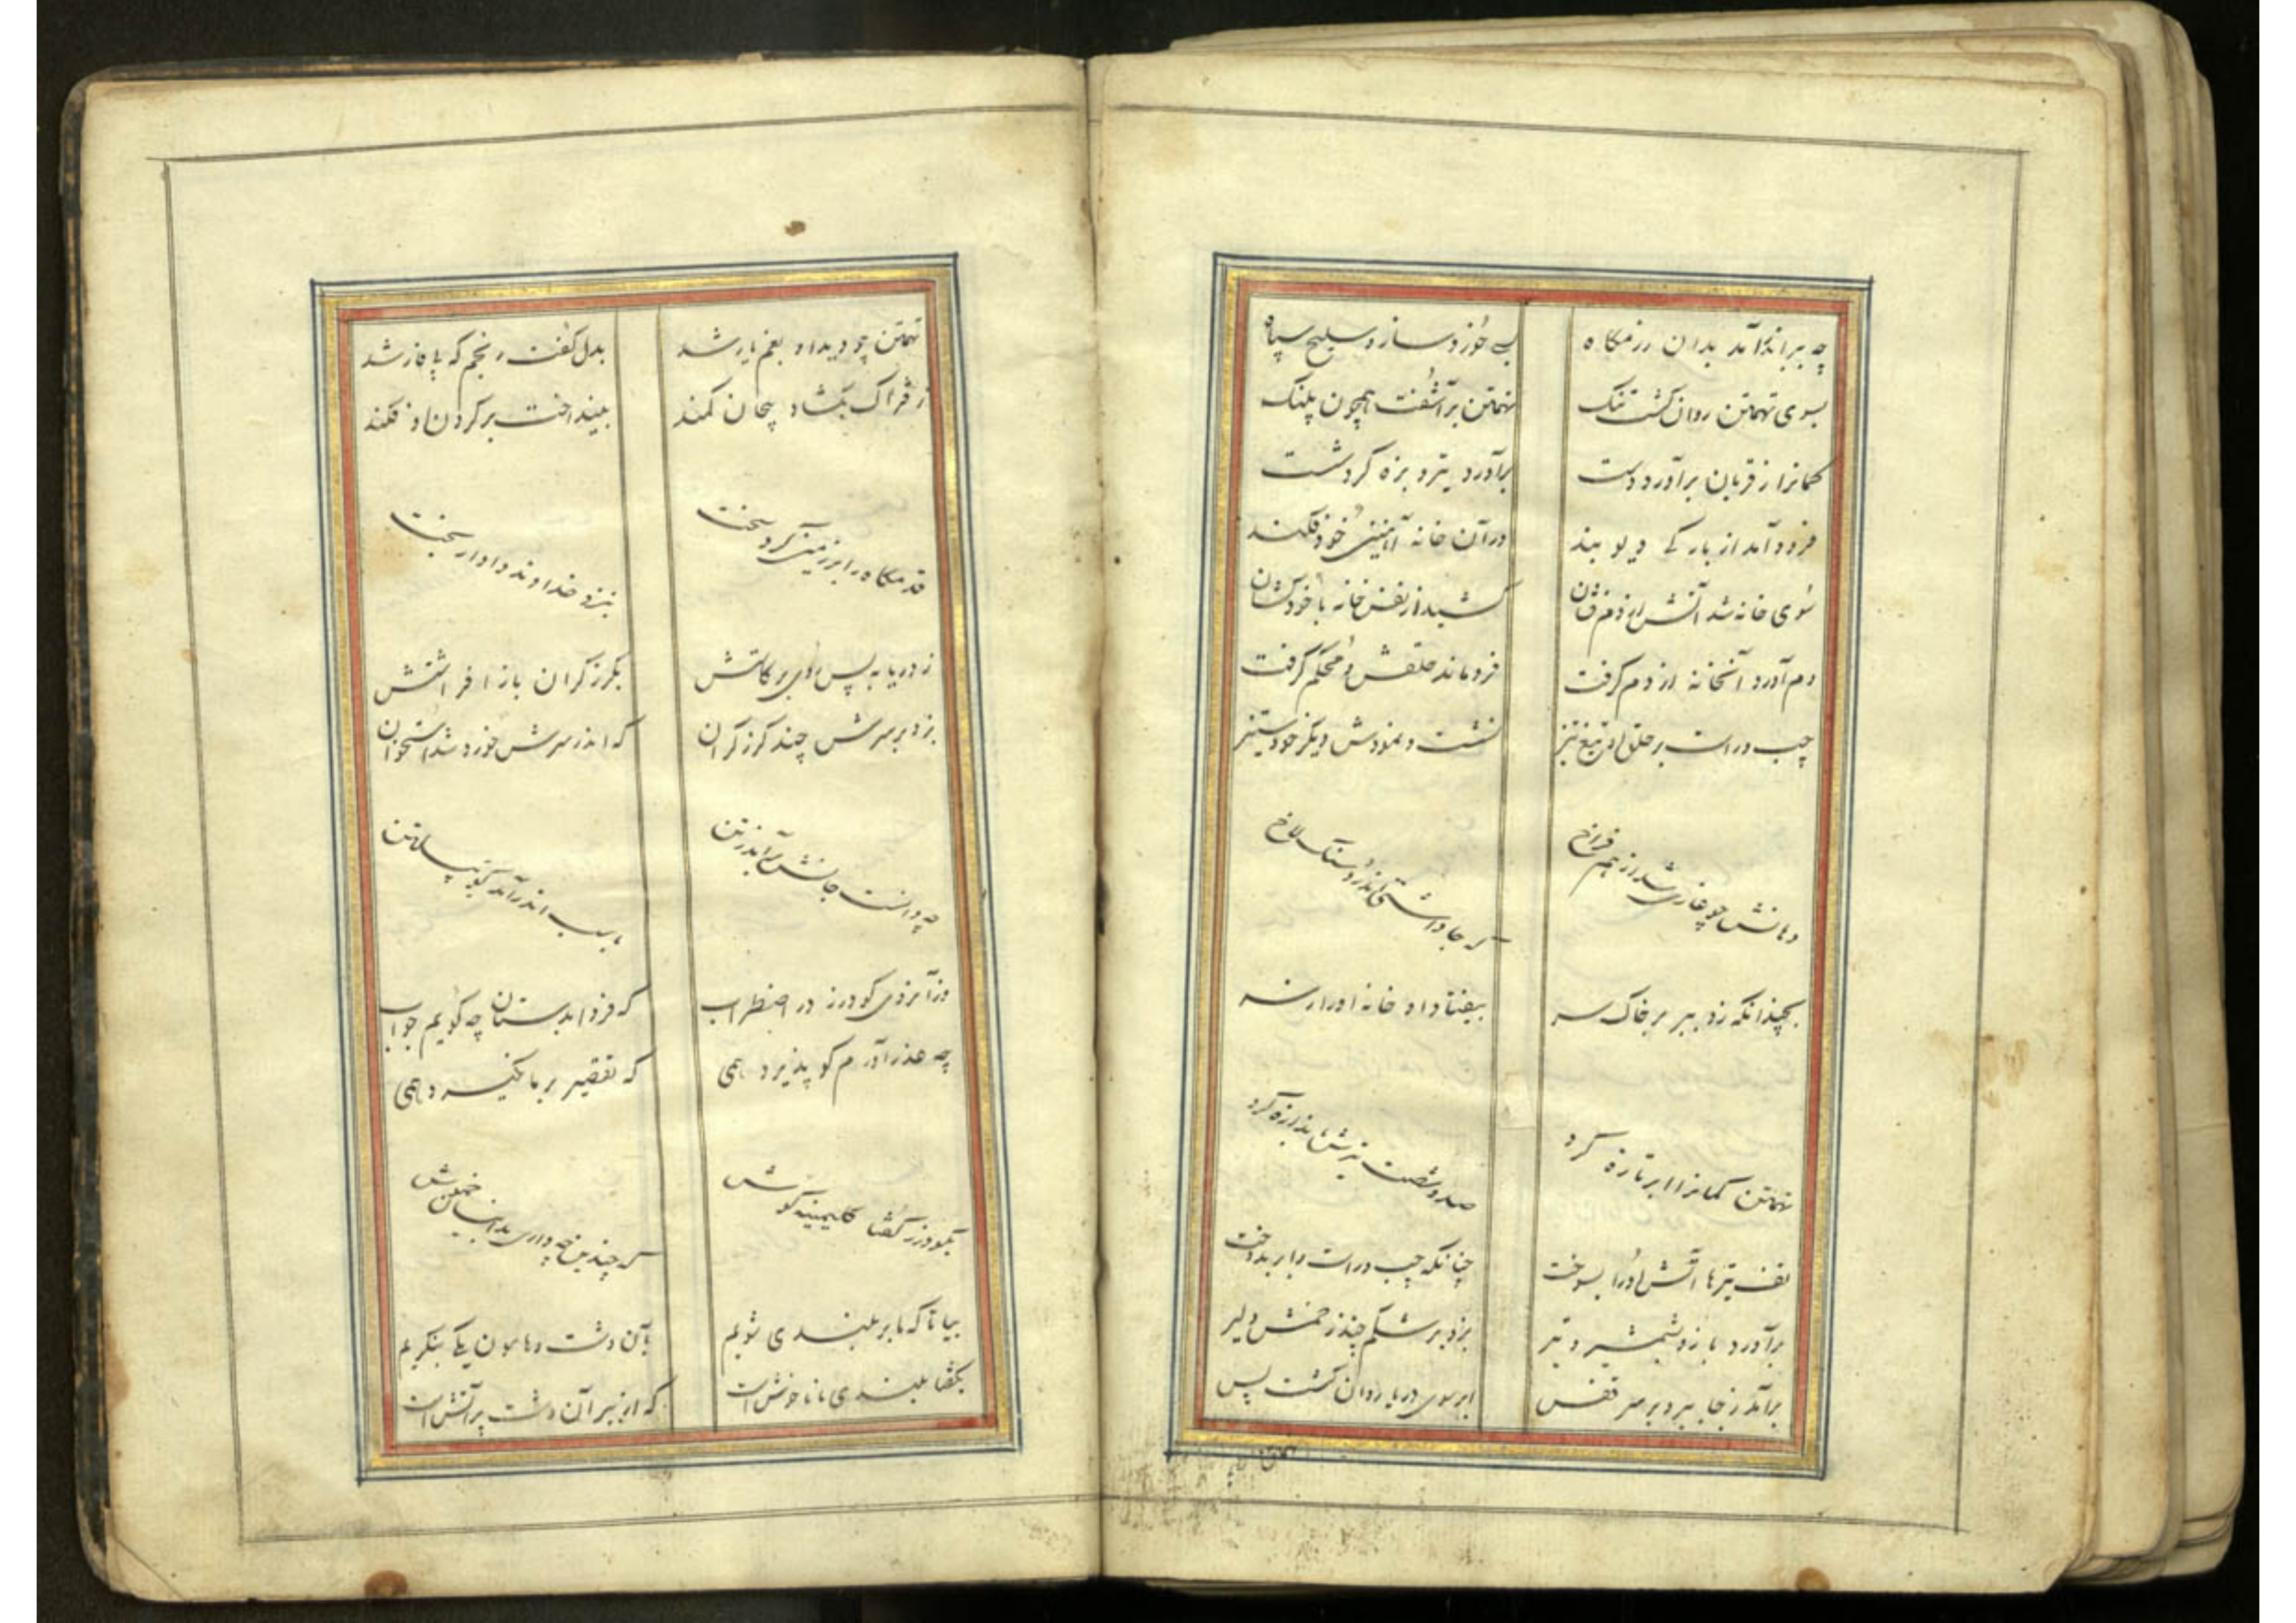 چه ببر اندر آمد بدان رزمگاه بی خورد و ساز و سلیح سپاه
بسوی تهمتن روان گشت تنگ تهمتن برآشفت همچون پلنگ
کمانرا ز قربان برآورد دست برآورد تیر و بزه کرد شست
فرود آمد از بارگی دیو بند در آن خانه آهنین خود فکند
سوی خانه شد آتش از دم فشان کشید از نفس خانه با خود کشان
دم آورد آنخانه از دم گرفت فرو ماند حلقش و محکم گرفت
چپ و راست بر حلق او تیغ تیز نشست و نمودش دیگر خود ستیز
دهانش چو غاری شد از هم فراخ که جا داشتی اندرو سنگلاخ
بچندانکه زد ببر بر خاک سر بیفتاد او خانه اورا ز سر
تهمتن کمانرا ابر تازه کرد صد و شصت تیرش بدان زه کرد
تف تیرها آتش اورا بسوخت چنانکه چپ و راست با بر بدوخت
برآورد بازو شمشیر و تیر بزد بر شکم چند زخمش دلیر
برآمد ز جا ببر و بر سر قفس ابر سوی دریا روان گشت پس
تهمتن چو دید او بغم یار شد بدل گفت رنجم که پا فار شد
ز فتراک بگشاد پیچان کمند بینداخت بر گردن او فکند
قدمگاه را بر زمین کرد سخت بنزد خداوند دادار بخت
ز دریا به پس بگرز گران باز افراشتش
بزد بر سرش چند گرز گران که اندر سرش خورد شد استخوان
چه دانست جانش برآمد ز تن باسب اندر آمد گو پیلتن
وز آنروی گودرز در اضطراب که فردا بدستان چه گویم جواب
چه عذر آورم کو پذیرد همی که تقصیر بر ما نگیرد همی
بگودرز گفتا که چندین چه داری بدینسان خموش
بیا تا که ما بر بلندی شویم بآن دشت و هامون یکی بنگریم
بگفتا بلندی ما ناخوش است که از ببر آن دشت پر آتش است